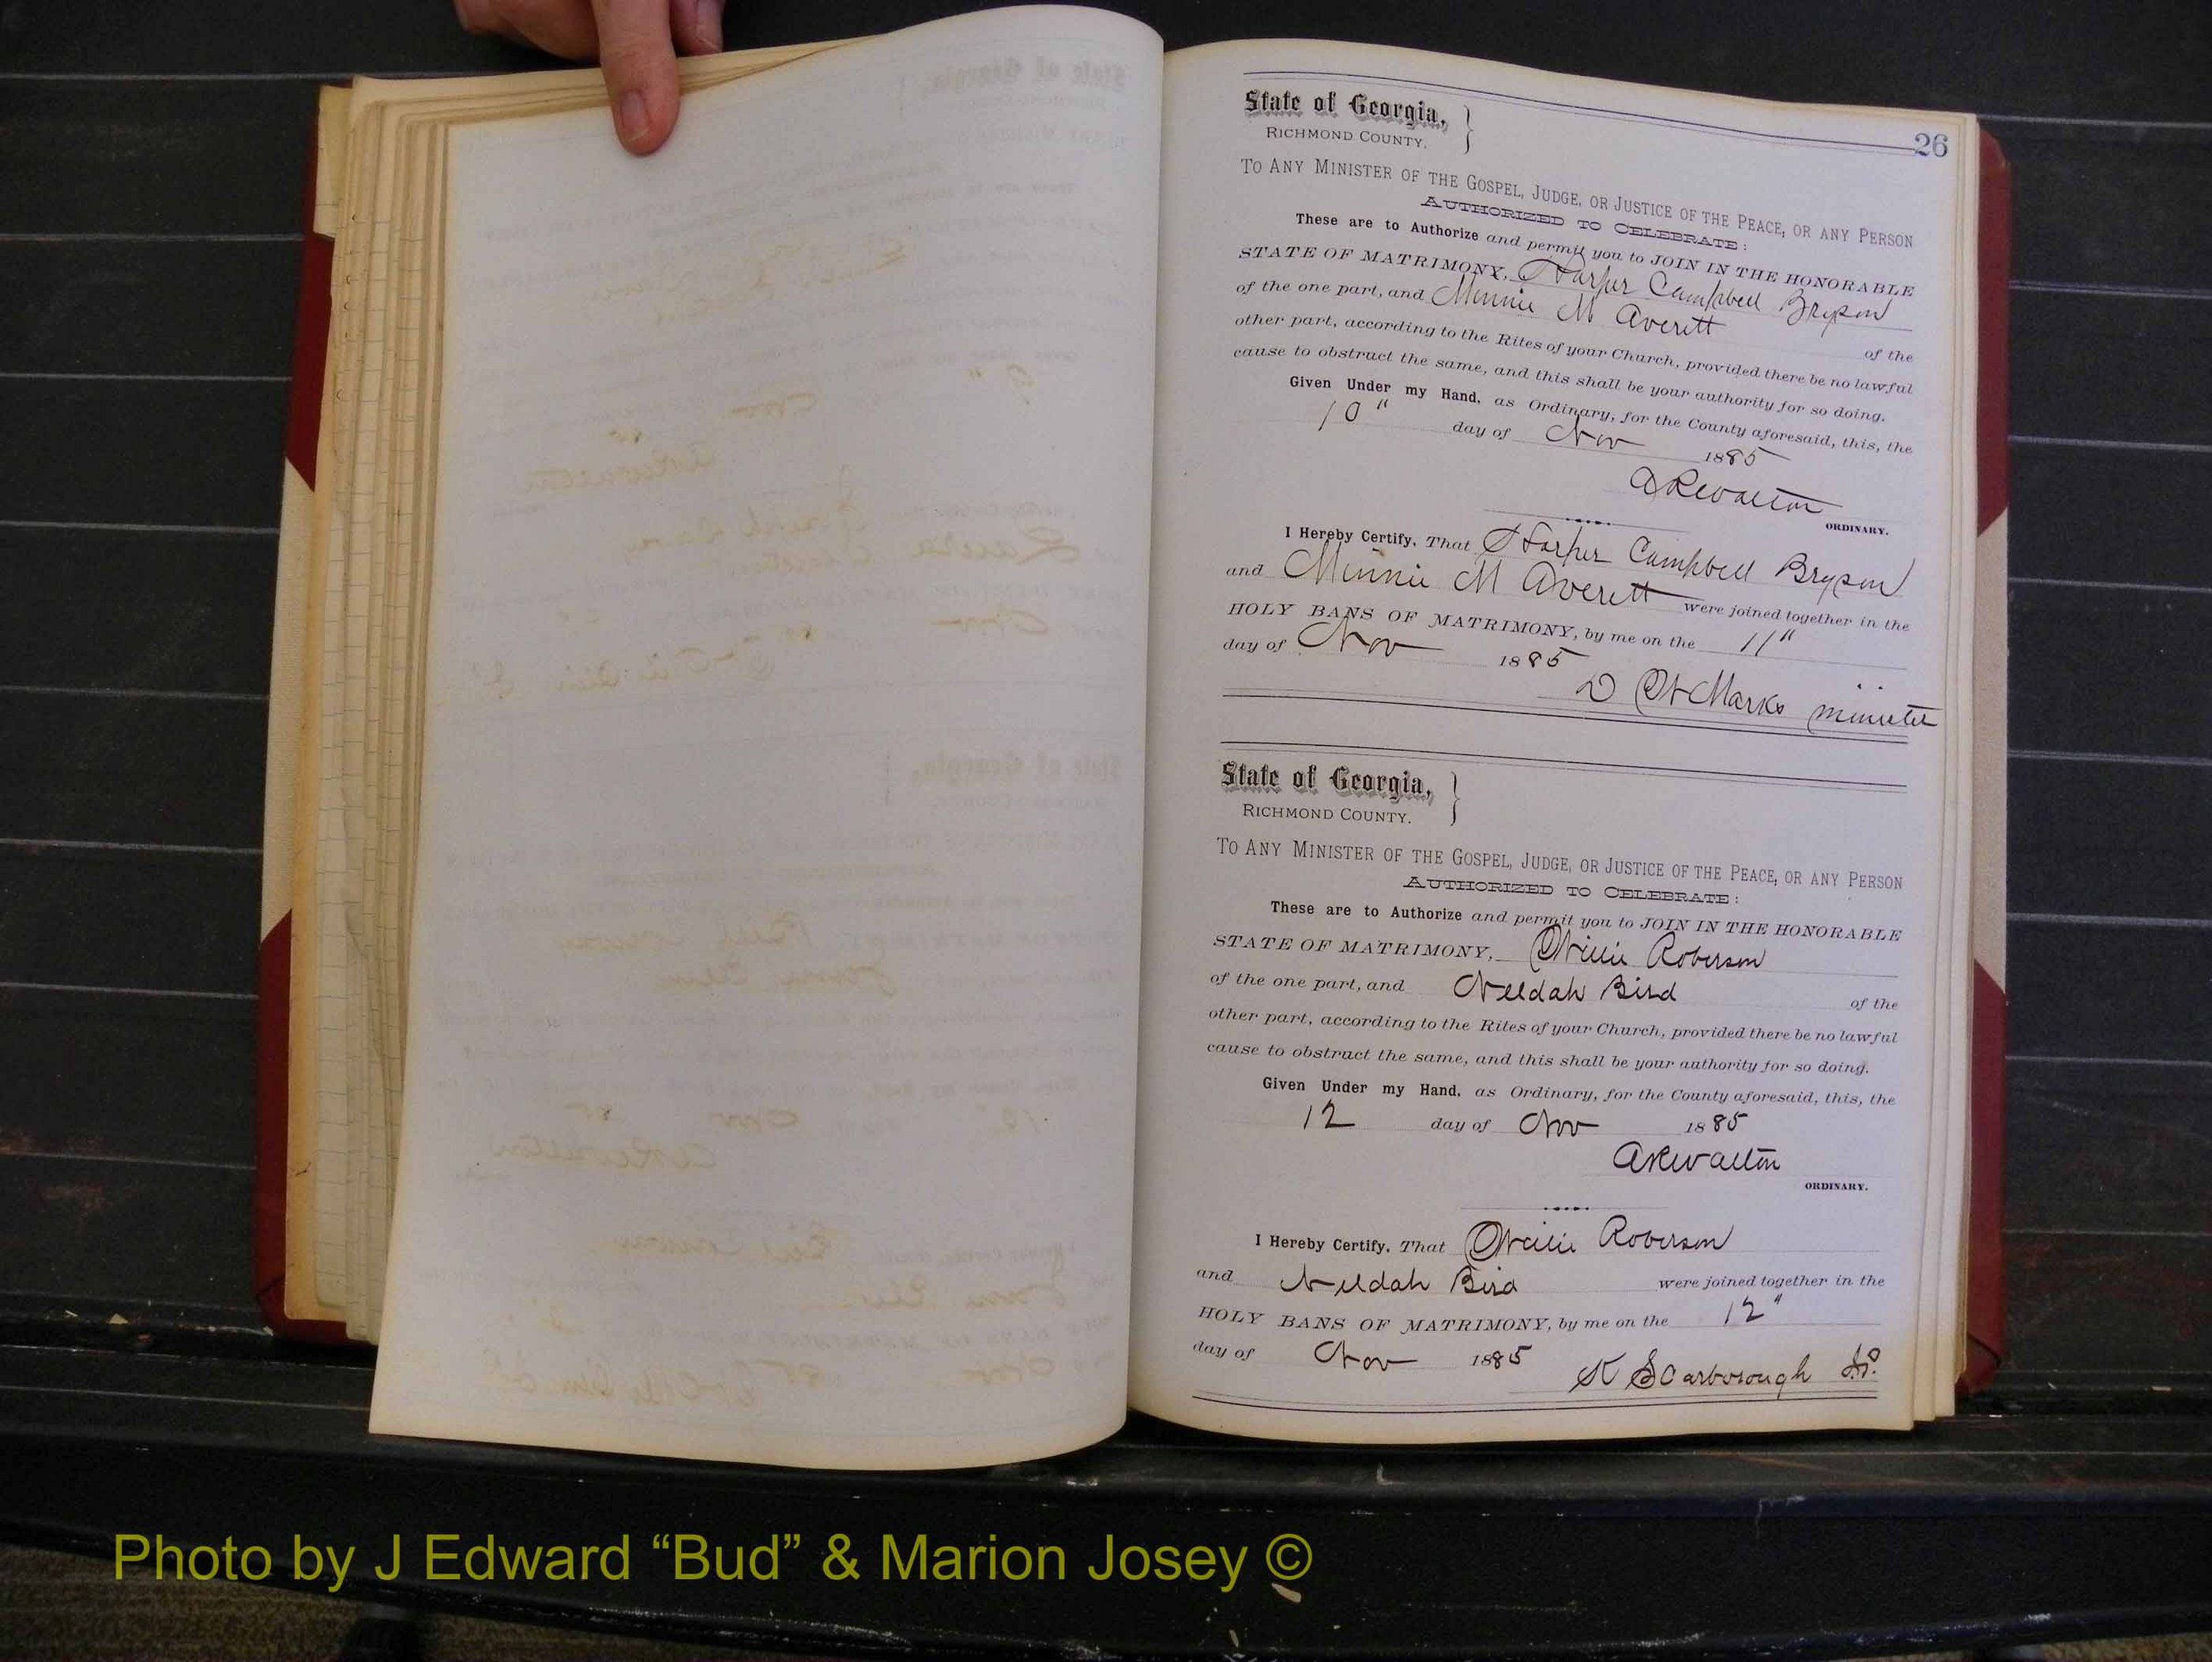 26
State of Georgia,
RICHMOND COUNTY.
TO ANY MINISTER OF THE GOSPEL, JUDGE, OR JUSTICE OF THE PEACE, OR ANY PERSON
AUTHORIZED TO CELEBRATE:
These are to Authorize and permit you to JOIN IN THE HONORABLE
STATE OF MATRIMONY, Harper Campbell Bryson
of the one part, and Minnie M Averett of the
other part, according to the Rites of your Church, provided there be no lawful
cause to obstruct the same, and this shall be your authority for so doing.
Given Under my Hand, as Ordinary, for the County aforesaid, this, the
10" day of Nov 1885
A R Walton
ORDINARY.
I Hereby Certify, That Harper Campbell Bryson
and Minnie M Averett were joined together in the
HOLY BANS OF MATRIMONY, by me on the 11"
day of Nov 1885
D W Marks minister
State of Georgia,
RICHMOND COUNTY.
TO ANY MINISTER OF THE GOSPEL, JUDGE, OR JUSTICE OF THE PEACE, OR ANY PERSON
AUTHORIZED TO CELEBRATE:
These are to Authorize and permit you to JOIN IN THE HONORABLE
STATE OF MATRIMONY, Willie Roberson
of the one part, and Neldah Bird of the
other part, according to the Rites of your Church, provided there be no lawful
cause to obstruct the same, and this shall be your authority for so doing.
Given Under my Hand, as Ordinary, for the County aforesaid, this, the
12 day of Nov 1885
A R Walton
ORDINARY.
I Hereby Certify, That Willie Roberson
and Neldah Bird were joined together in the
HOLY BANS OF MATRIMONY, by me on the 12"
day of Nov 1885
K Scarborough J.P.
Photo by J Edward “Bud” & Marion Josey ©